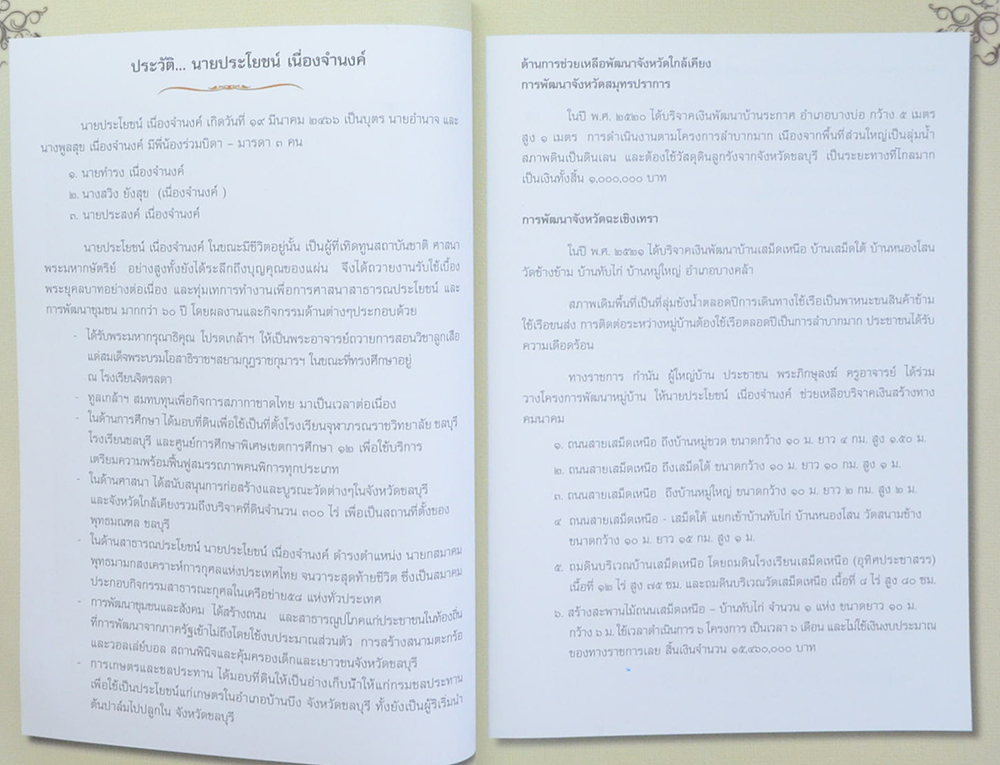 ประวัติ... นายประโยชน์ เนื่องจำนงค์
นายประโยชน์ เนื่องจำนงค์ เกิดวันที่ ๑๙ มีนาคม ๒๔๖๖ เป็นบุตร นายอำนาจ และ
นางพูลสุข เนื่องจำนงค์ มีพี่น้องร่วมบิดา – มารดา ๓ คน
๑. นายทำรง เนื่องจำนงค์
๒. นางสวิง ยังสุข (เนื่องจำนงค์ )
๓. นายประสงค์ เนื่องจำนงค์
นายประโยชน์ เนื่องจำนงค์ ในขณะมีชีวิตอยู่นั้น เป็นผู้ที่เทิดทูนสถาบันชาติ ศาสนา
พระมหากษัตริย์ อย่างสูงทั้งยังได้ระลึกถึงบุญคุณของแผ่น จึงได้ถวายงานรับใช้เบื้อง
พระยุคลบาทอย่างต่อเนื่อง และทุ่มเทการทำงานเพื่อการศาสนาสาธารณประโยชน์ และ
การพัฒนาชุมชน มากกว่า ๖๐ ปี โดยผลงานและกิจกรรมด้านต่างๆประกอบด้วย
- ได้รับพระมหากรุณาธิคุณ โปรดเกล้าฯ ให้เป็นพระอาจารย์ถวายการสอนวิชาลูกเสือ
แด่สมเด็จพระบรมโอสาธิราชฯสยามกุฎราชกุมารฯ ในขณะที่ทรงศึกษาอยู่
ณ โรงเรียนจิตรลดา
- ทูลเกล้าฯ สมทบทุนเพื่อกิจการสภากาชาดไทย มาเป็นเวลาต่อเนื่อง
- ในด้านการศึกษา ได้มอบที่ดินเพื่อใช้เป็นที่ตั้งโรงเรียนจุฬาภรณราชวิทยาลัย ชลบุรี
โรงเรียนชลบุรี และศูนย์การศึกษาพิเศษเขตการศึกษา ๑๒ เพื่อใช้บริการ
เตรียมความพร้อมฟื้นฟูสมรรถภาพคนพิการทุกประเภท
- ในด้านศาสนา ได้สนับสนุนการก่อสร้างและบูรณะวัดต่างๆในจังหวัดชลบุรี
และจังหวัดใกล้เคียงรวมถึงบริจาคที่ดินจำนวน ๓๐๐ ไร่ เพื่อเป็นสถานที่ตั้งของ
พุทธมณฑล ชลบุรี
- ในด้านสาธารณประโยชน์ นายประโยชน์ เนื่องจำนงค์ ดำรงตำแหน่ง นายกสมาคม
พุทธมามกสงเคราะห์การกุศลแห่งประเทศไทย จนวาระสุดท้ายชีวิต ซึ่งเป็นสมาคม
ประกอบกิจกรรมสาธารณะกุศลในเครือข่าย๕๔ แห่งทั่วประเทศ
- การพัฒนาชุมชนและสังคม ได้สร้างถนน และสาธารณูปโภคแก่ประชาชนในท้องถิ่น
ที่การพัฒนาจากภาครัฐเข้าไม่ถึงโดยใช้งบประมาณส่วนตัว การสร้างสนามตะกร้อ
และวอลเล่ย์บอล สถานพินิจและคุ้มครองเด็กและเยาวชนจังหวัดชลบุรี
- การเกษตรและชลประทาน ได้มอบที่ดินให้เป็นอ่างเก็บน้ำให้แก่กรมชลประทาน
เพื่อใช้เป็นประโยชน์แก่เกษตรในอำเภอบ้านบึง จังหวัดชลบุรี ทั้งยังเป็นผู้ริเริ่มนำ
ต้นปาล์มไปปลูกใน จังหวัดชลบุรี
ด้านการช่วยเหลือพัฒนาจังหวัดใกล้เคียง
การพัฒนาจังหวัดสมุทรปราการ
ในปี พ.ศ. ๒๕๒๐ ได้บริจาคเงินพัฒนาบ้านระกาศ อำเภอบางบ่อ กว้าง ๕ เมตร
สูง ๑ เมตร การดำเนินงานตามโครงการลำบากมาก เนื่องจากพื้นที่ส่วนใหญ่เป็นลุ่มน้ำ
สภาพดินเป็นดินเลน และต้องใช้วัสดุดินลูกรังจากจังหวัดชลบุรี เป็นระยะทางที่ไกลมาก
เป็นเงินทั้งสิ้น ๑,๐๐๐,๐๐๐ บาท
การพัฒนาจังหวัดฉะเชิงเทรา
ในปี พ.ศ. ๒๕๒๑ ได้บริจาคเงินพัฒนาบ้านเสม็ดเหนือ บ้านเสม็ดใต้ บ้านหนองโสน
วัดช้างข้าม บ้านทับไก่ บ้านหมู่ใหญ่ อำเภอบางคล้า
สภาพเดิมพื้นที่เป็นที่ลุ่มขังน้ำตลอดปีการเดินทางใช้เรือเป็นพาหนะขนสินค้าข้าม
ใช้เรือขนส่ง การติดต่อระหว่างหมู่บ้านต้องใช้เรือตลอดปีเป็นการลำบากมาก ประชาชนได้รับ
ความเดือดร้อน
ทางราชการ กำนัน ผู้ใหญ่บ้าน ประชาชน พระภิกษุสงฆ์ ครูอาจารย์ ได้ร่วม
วางโครงการพัฒนาหมู่บ้าน ให้นายประโยชน์ เนื่องจำนงค์ ช่วยเหลือบริจาคเงินสร้างทาง
คมนาคม
๑. ถนนสายเสม็ดเหนือ ถึงบ้านหมู่ขวด ขนาดกว้าง ๑๐ ม. ยาว ๔ กม. สูง ๑.๕๐ ม.
๒. ถนนสายเสม็ดเหนือ ถึงเสม็ดใต้ ขนาดกว้าง ๑๐ ม. ยาว ๑๐ กม. สูง ๑ ม.
๓. ถนนสายเสม็ดเหนือ ถึงบ้านหมู่ใหญ่ ขนาดกว้าง ๑๐ ม. ยาว ๒ กม. สูง ๒ ม.
๔ ถนนสายเสม็ดเหนือ - เสม็ดใต้ แยกเข้าบ้านทับไก่ บ้านหนองโสน วัดสนามช้าง
ขนาดกว้าง ๑๐ ม. ยาว ๑๕ กม. สูง ๑ ม.
๕. ถมดินบริเวณบ้านเสม็ดเหนือ โดยถมดินโรงเรียนเสม็ดเหนือ (อุทิศประชาสรร)
เนื้อที่ ๑๒ ไร่ สูง ๗๕ ซม. และถมดินบริเวณวัดเสม็ดเหนือ เนื้อที่ ๔ ไร่ สูง ๘๐ ซม.
๖. สร้างสะพานไม้ถนนเสม็ดเหนือ – บ้านทับไก่ จำนวน ๑ แห่ง ขนาดยาว ๑๐ ม.
กว้าง ๖ ม. ใช้เวลาดำเนินการ ๖ โครงการ เป็นเวลา ๖ เดือน และไม่ใช้เงินงบประมาณ
ของทางราชการเลย สิ้นเงินจำนวน ๑๕,๔๖๐,๐๐๐ บาท